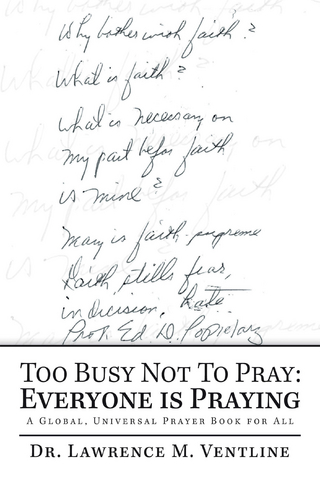 Why bother with faith?
What is faith?
What is necessary on
my part before faith
is mine?
Mary is faith supreme
Faith stills fear,
indecision, hate
Prof. Ed. D. Popielarz
TOO BUSY NOT TO PRAY:
EVERYONE IS PRAYING
A GLOBAL, UNIVERSAL PRAYER BOOK FOR ALL
DR. LAWRENCE M. VENTLINE